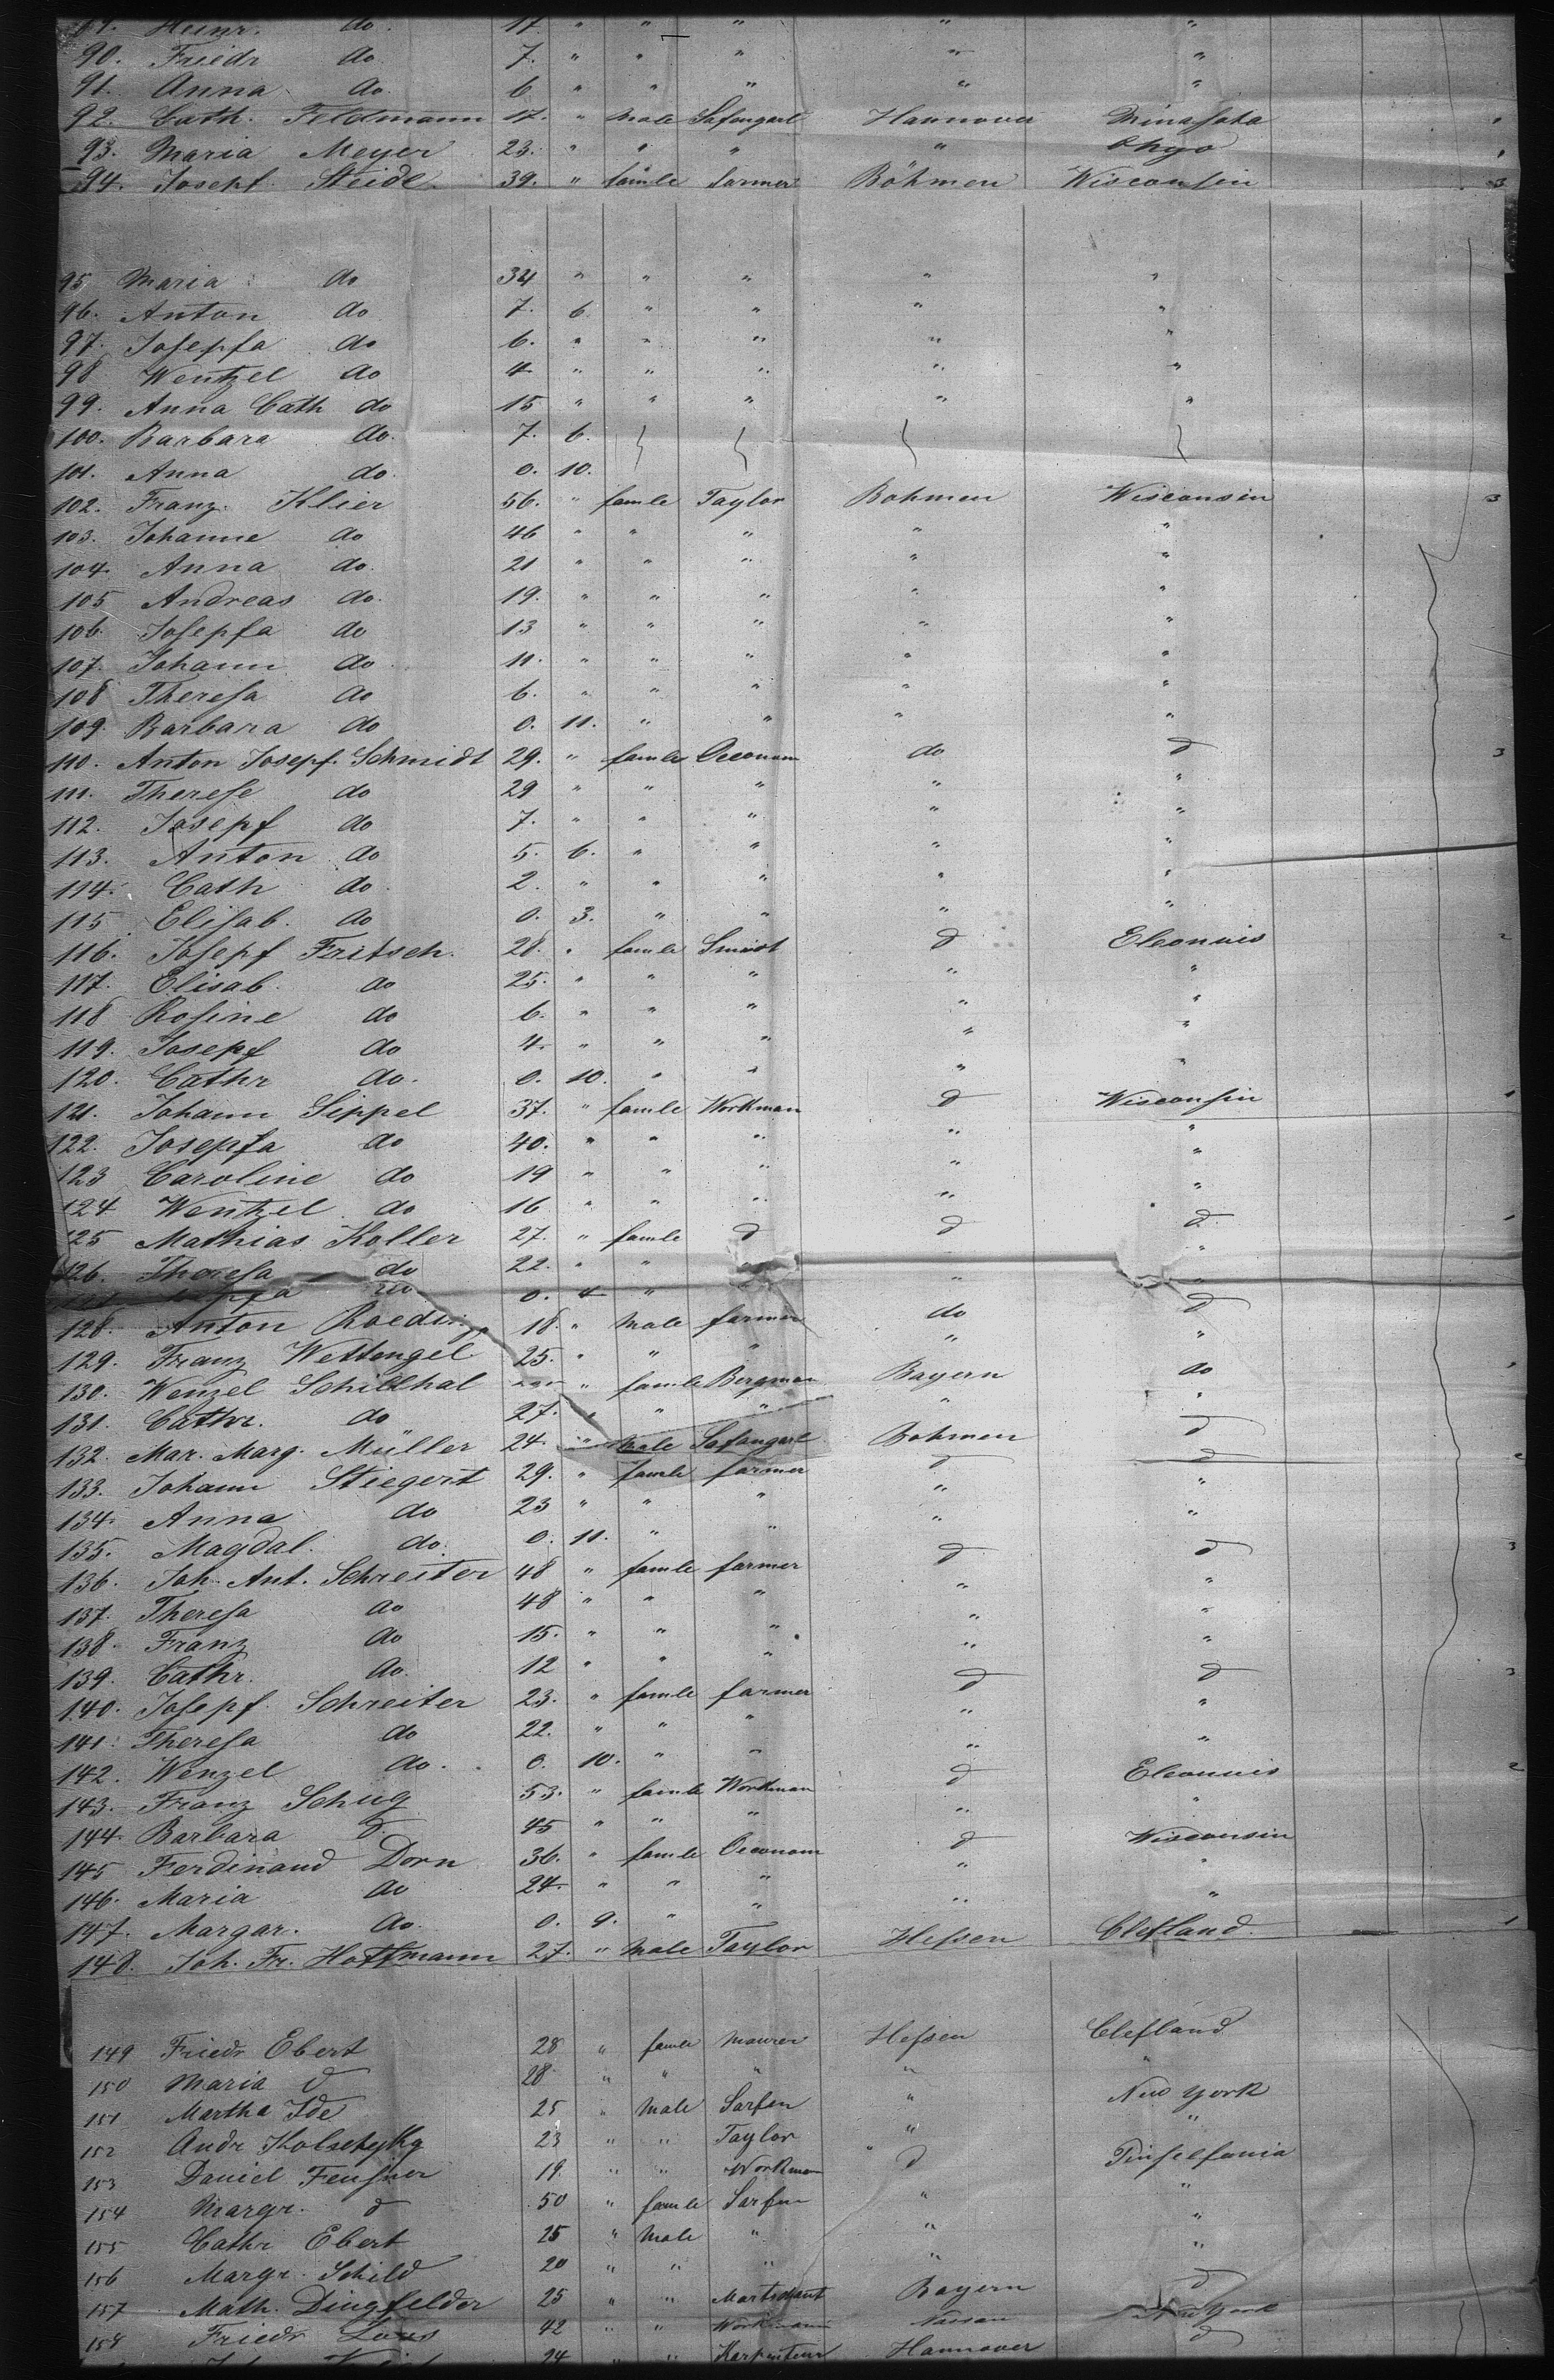 Heinr. do. 17. " " " " "
90. Friedr do 7. " " " " "
91. Anna do. 6 " " " " "
92. Cath. Feldmann 17. " Male Safengart Hannover Minasota 1
93. Maria Meyer 23. " " " " Ohyo 1
94. Josepf Steidl. 39. " famle farmer Böhmen Wisconsin 3
95 Maria do 34 " " " " "
96. Anton do 7. 6 " " " "
97. Josepfa do 6. " " " " "
98 Wentzel do 4 " " " " "
99. Anna Cath do 15 " " " " "
100. Barbara do. 7. 6.
101. Anna do. 0. 10.
102. Franz. Klier 56. " famle Taylor Bohmen Wisconsin 3
103. Johanne do 46 " " " " "
104. Anna do. 21 " " " " "
105 Andreas do. 19. " " " " "
106. Josepfa do 13 " " " " "
107. Johann do 11. " " " " "
108 Theresa do 6. " " " " "
109. Barbara do 0. 11. " " " "
110. Anton Josepf. Schmidt 29. " famle Oeconom do d 3
111. Therese do 29 " " " " "
112. Josepf do 7. " " " " "
113. Anton do 5. 6. " " " "
114. Cath do. 2. " " " " "
115 Elisab. do 0. 3. " " " "
116. Josepf Fritsch. 28. " famle Smidt d Eleonuis 2
117. Elisab. do 25. " " " " "
118 Rosine do 6. " " " " "
119. Josepf do 4. " " " " "
120. Cathr do. 0. 10. " " " "
121. Johann Sippel 37. " famle Workman d Wisconsin 1
122. Josepfa do 40. " " " " "
123 Caroline do 19 " " " " "
124 Wentzel do 16 " " " " "
125 Mathias Koller 27. " famle d d d 1
126. Theresa do 22. " " " "
do 0. 4 " " "
128. Anton 18. " Male farmer do d
129. Franz Wettengel 25. " " " " "
130. Wenzel Schillhal " famle Bergman Bayern do 1
131. Cathr. do 27. " " " " "
132. Mar. Marg. Müller 24. " Male Safangart Bohmen d
133. Johann Stiegert 29. " famle farmer d d 2
134. Anna do 23 " " " " "
135. Magdal. do. 0. 11. " " " "
136. Joh. Ant. Schreiter 48 " famle farmer d d 3
137. Theresa do 48 " " " " "
138. Franz do 15. " " " " "
139. Cathr. do. 12 " " " " "
140. Josepf. Schreiter 23. " famle farmer d d 3
141. Theresa do 22. " " " " "
142. Wenzel do. 0. 10. " " " "
143. Franz Schug 53. " famle Workman d Eleonuis 2
144. Barbara d. 45 " " " " "
145 Ferdinand Dorn 36. " famle Oeconom d Wisconsin
146. Maria do 24. " " " " "
147. Margar. do. 0. 9. " " " "
148. Joh. Fr. Hoffmann 27. " Male Taylor Hessen Clefland. 1
149 Friedr Ebert 28 " famle Maurer Hefsen Clefland
150 Maria d 28 " " " " "
151 Martha Ide 25 " Male Sarfen " New York
152 Andr 23 " " Taylor " "
153 Daniel 19. " " Workman d Pinselfania
154 Margr. d 50 " famle Sarfen " "
155 Cathr Ebert 25 " Male " " "
156 Margr. Schild 20 " " " " "
157 Math. Dingfelder 25 " " Martschant Bayern d
158 Friedr 42 " " Workmann Nassau New York
24 " " Karpenteur Hannover d